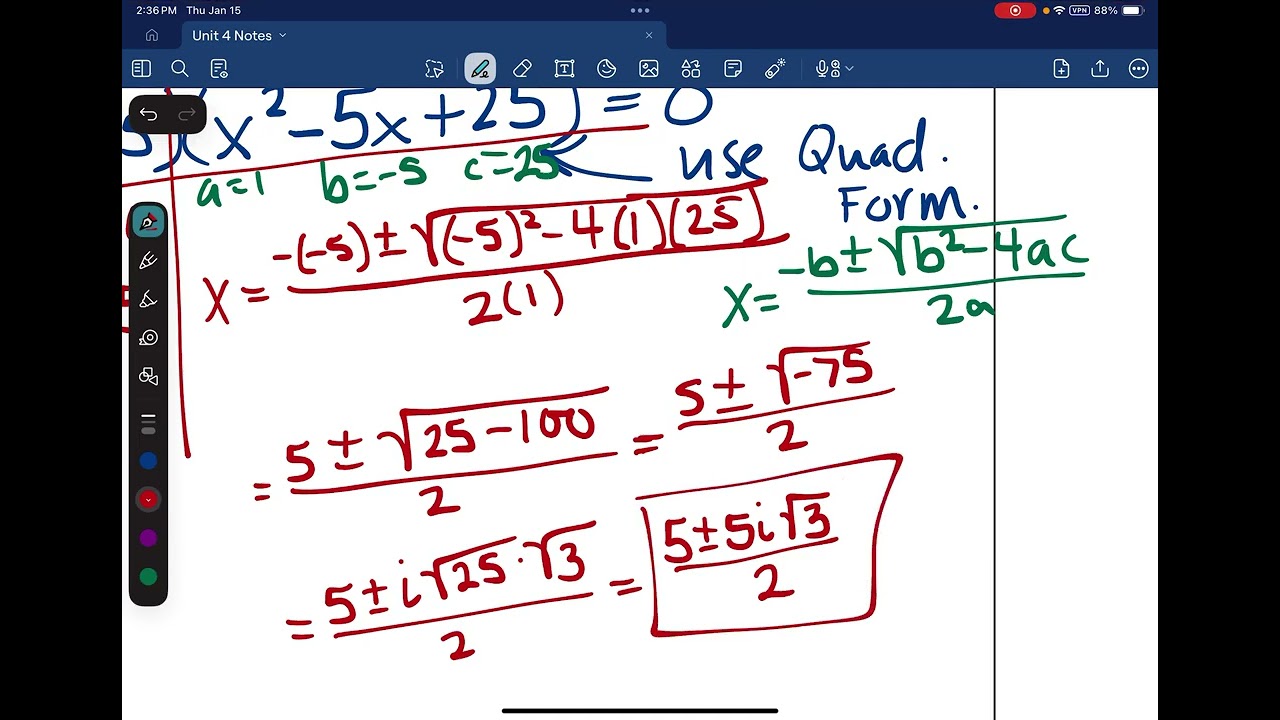 2:36 PM Thu Jan 15
VPN 88%
Unit 4 Notes
5)(x² - 5x + 25) = 0
a=1 b=-5 c=25
use Quad.
Form.
x = (-(-5) ± √((-5)² - 4(1)(25))) / 2(1)
x = (-b ± √(b² - 4ac)) / 2a
= (5 ± √(25 - 100)) / 2 = (5 ± √(-75)) / 2
= (5 ± i√25 · √3) / 2 = (5 ± 5i√3) / 2